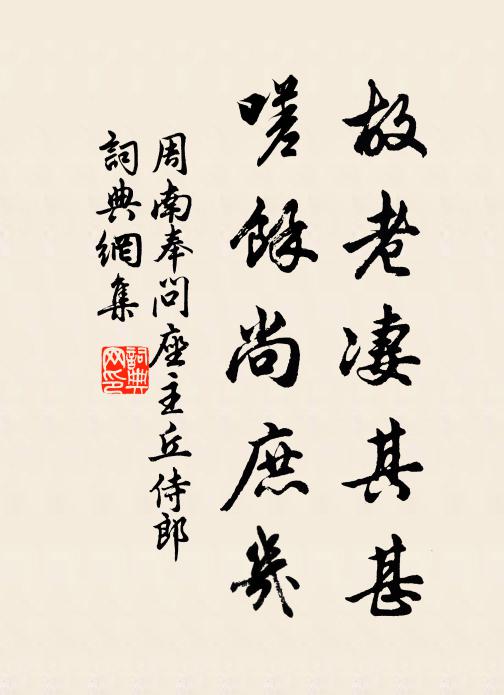 故老凄其甚
嗟餘尚庶幾
周南奉問座主丘侍郎
詞典網集
詞典网印